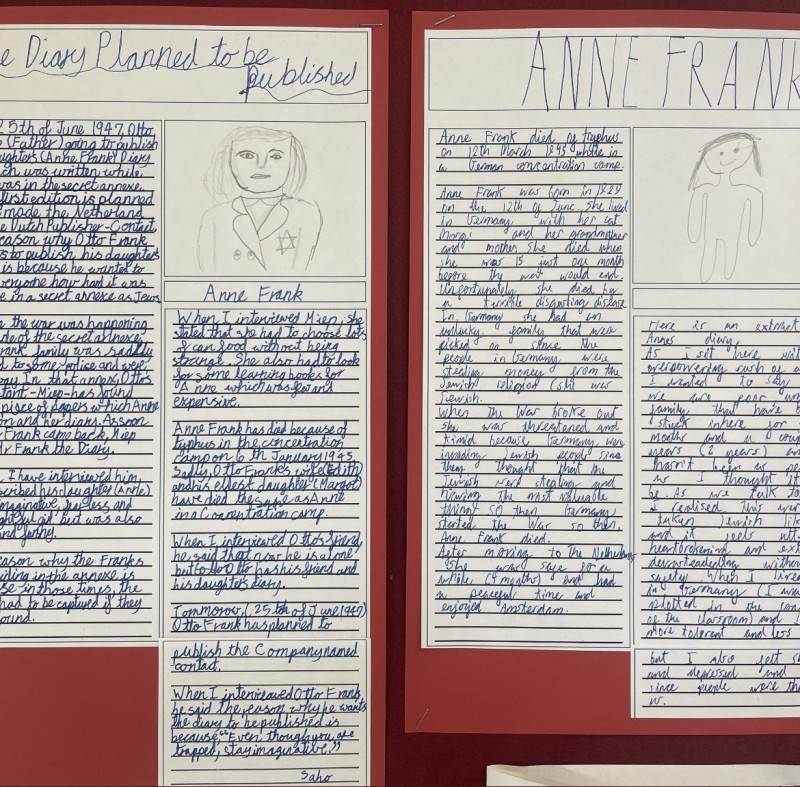 e Diary Planned to be
published
25th of June 1947, Otto
(Father) going to publish
ughters (Anne Frank) Diary
ch was written while
was in the secret annexe.
first edition is planned
made the Netherland
e Dutch Publisher-Contact
eason why Otto Frank
s to publish his daughters
is because he wanted to
everyone how had it was
e in a secret annexe as Jews
e the war was happening
de of the secret annexe,
rank family was sadly
d to some police and were
In that annex, Otto's
tant-Miep-has found
piece of papers which Anne
on and her diary. Assoon
Frank came back, Miep
r Frank the Diary.
I have interviewed him,
scribed his daughter (Anne)
maginative, fearless and
but was also
and funny.
eason why the Franks
iding in the annexe is
se in those times, the
had to be captured if they
ound.
Anne Frank
When I interviewed Mien, she
stated that she had to choose lots
of can food without being
strange. She also had to look
for some learning books for
Anne which was few and
expensive.
Anne Frank has died because of
typhus in the concentration
camp on 6th January 1945.
Sadly, Otto Frank's wife (Edith)
and his eldest daughter (Margot)
have died the same as Anne
in a Concentration camp.
When I interviewed Otto's friend,
he said that now he is alone
but Otto has his friend and
his daughter's diary.
Tommorow, (25th of June 1947)
Otto Frank has planned to
publish the Company named
contact.
When I interviewed Otto Frank
he said the reason why he wants
the diary to be published is
because, "Even though you are
trapped, stay imaginative."
Saho
ANNE FRANK
Anne Frank died of tryphus
on 12th March 1945 while in
a German concentration camp.
Anne Frank was born in 1929
on the 12th of June, she lived
in Germany with her cat
and her grandmother
and mother she died when
she was 15 just one month
before the war would end.
Unfortunately she died by
a terrible disgusting disease
In Germany she had in
unlucky family that were
picked on since the
people in Germany were
stealing money from the
Jewish religion (she was
Jewish.
When the War broke out
she was threatened and
timid because Germany were
invading Jewish people since
they thought that the
Jewish were stealing and
having the most valuable
things so then Germany
started the War so then,
Anne Frank died.
After moving to the Netherlands
she was safe for a
while (4 months) and had
a peaceful time and
enjoyed Amsterdam.
Here is an extract
Annes diary.
As I sit here with
overpowering rush of a
I wanted to say
we are poor
family that have b
stuck in here for
months and a coup
years (2 years) and
hasn't been as pe
as I thought it
be. As we talk to
I realised this wer
taken Jewish lik
and it feels utt
heartbreaking and ext
devastating withou
safety. When I lived
in Germany (I was
in the
of the classroom) and
more tolerant and less
but I also felt s
and depressed and
since people were th
us.